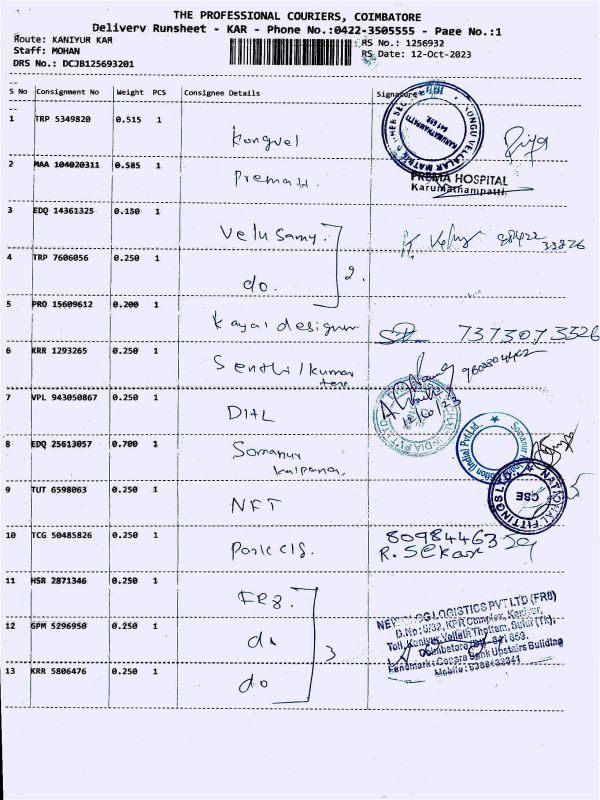 THE PROFESSIONAL COURIERS, COIMBATORE
Delivery Runsheet - KAR - Phone No.:0422-3505555 - Page No.:1
Route: KANIYUR KAR
RS No.: 1256932
Staff: MOHAN
RS Date: 12-Oct-2023
DRS No.: DCJB125693201
S No Consignment No Weight PCS Consignee Details Signature
1 TRP 5349820 0.515 1 Kongvel
KARUMATHAMPATTI
641 659.
2 MAA 104020311 0.585 1 Prema H.
PREMA HOSPITAL
Karumathampatti.
3 EDQ 14361325 0.150 1 Velu Samy. 98422
33826
4 TRP 7606056 0.250 1 do. 2.
5 PRO 15609612 0.200 1 Kayal designer 7373073326
6 KRR 1293265 0.250 1 Senthil kumar
tex
7 VPL 943050867 0.250 1 DHL
12/10/23
8 EDQ 25613057 0.700 1 Somanur
Kalpana.
9 TUT 6598063 0.250 1 NFT
NATIONAL FITTINGS LTD.
CBE
10 TCG 50485826 0.250 1 80984463
R. Sekar
11 HSR 2871346 0.250 1 FR8.
LOGISTICS PVT LTD (FR8)
D.No: 5/32, KPR Complex, Kaniyur,
Toll, Kaniyur, Vallath Thottam, Sulur (Tk),
12 GPM 5296950 0.250 1 do 3
Coimbatore 641 659.
Landmark: Canara Bank Upstairs Building
13 KRR 5806476 0.250 1 do
Mobile: